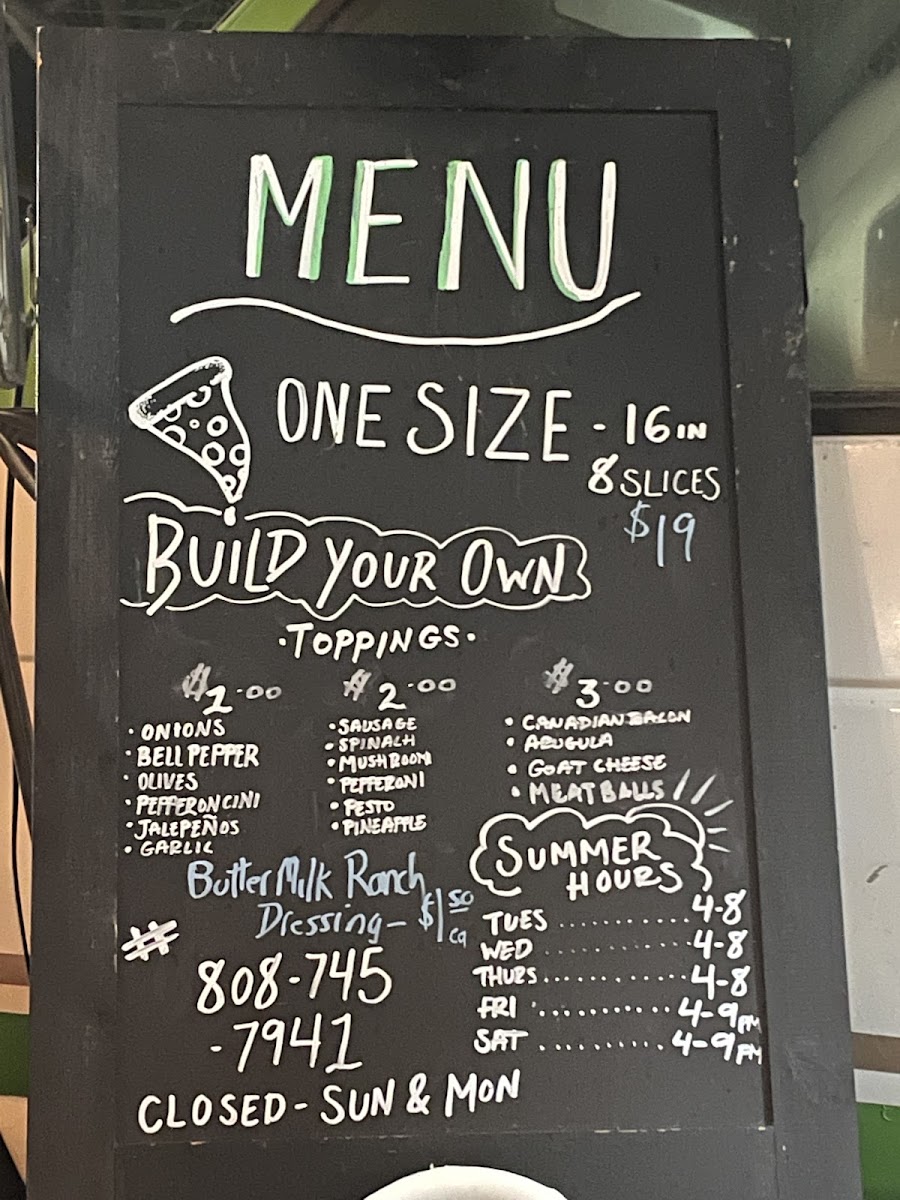 MENU
ONE SIZE - 16 IN
8 SLICES
$19
BUILD YOUR OWN
·TOPPINGS·
$1.00
· ONIONS
· BELL PEPPER
· OLIVES
· PEPPERONCINI
· JALEPEÑOS
· GARLIC
$2.00
· SAUSAGE
· SPINACH
· MUSHROOM
· PEPPERONI
· PESTO
· PINEAPPLE
$3.00
· CANADIAN BACON
· ARUGULA
· GOAT CHEESE
· MEATBALLS
Butter Milk Ranch
Dressing - $1 50 ea
#
808-745
-7941
SUMMER
HOURS
TUES .......... 4-8
WED .......... 4-8
THURS .......... 4-8
FRI .......... 4-9 PM
SAT .......... 4-9 PM
CLOSED - SUN & MON